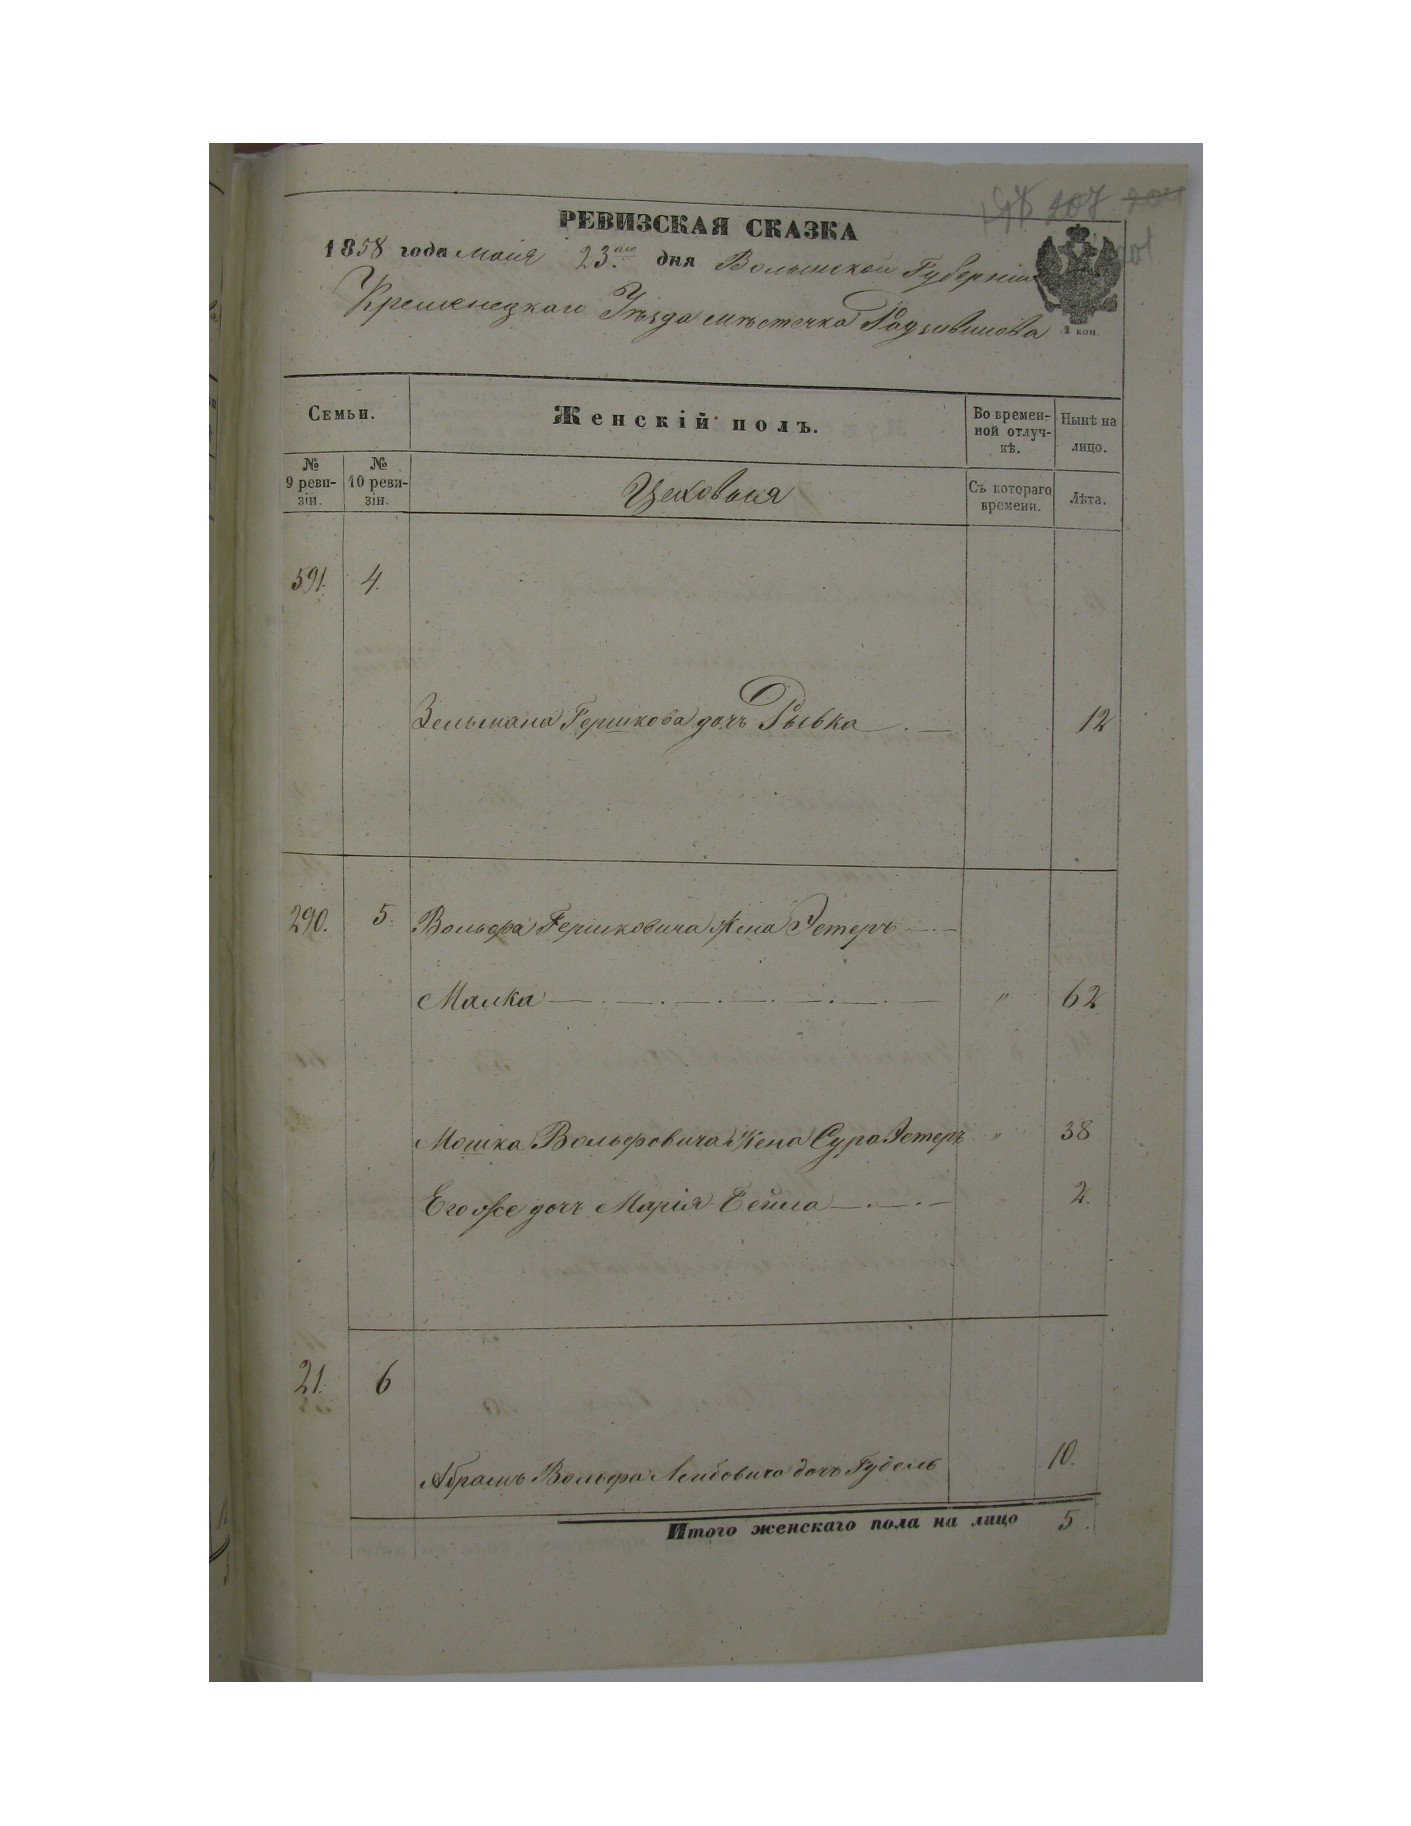 207
РЕВИЗСКАЯ СКАЗКА
1858 года маия 23го дня Волынской Губерніи
Кременецкаго Уѣзда мѣстечка Радзивилова
2 коп.
Семьи.
Женскій полъ.
Во временной отлучкѣ.
Нынѣ на лицо.
№ 9 ревизіи.
№ 10 ревизіи.
Цеховыя
Съ котораго времени.
Лѣта.
591. 4.
Зельмана Гершкова дочь Рывка 12
290. 5. Вольфа Гершковича Жена Эстеръ
Малка " 62
Мошка Вольфовича Жена Сура Эстеръ " 38
Его же дочь Марія Бейла 2.
21. 6
Абрамъ Вольфа Лейбовича дочь Гудель 10.
Итого женскаго пола на лицо 5.